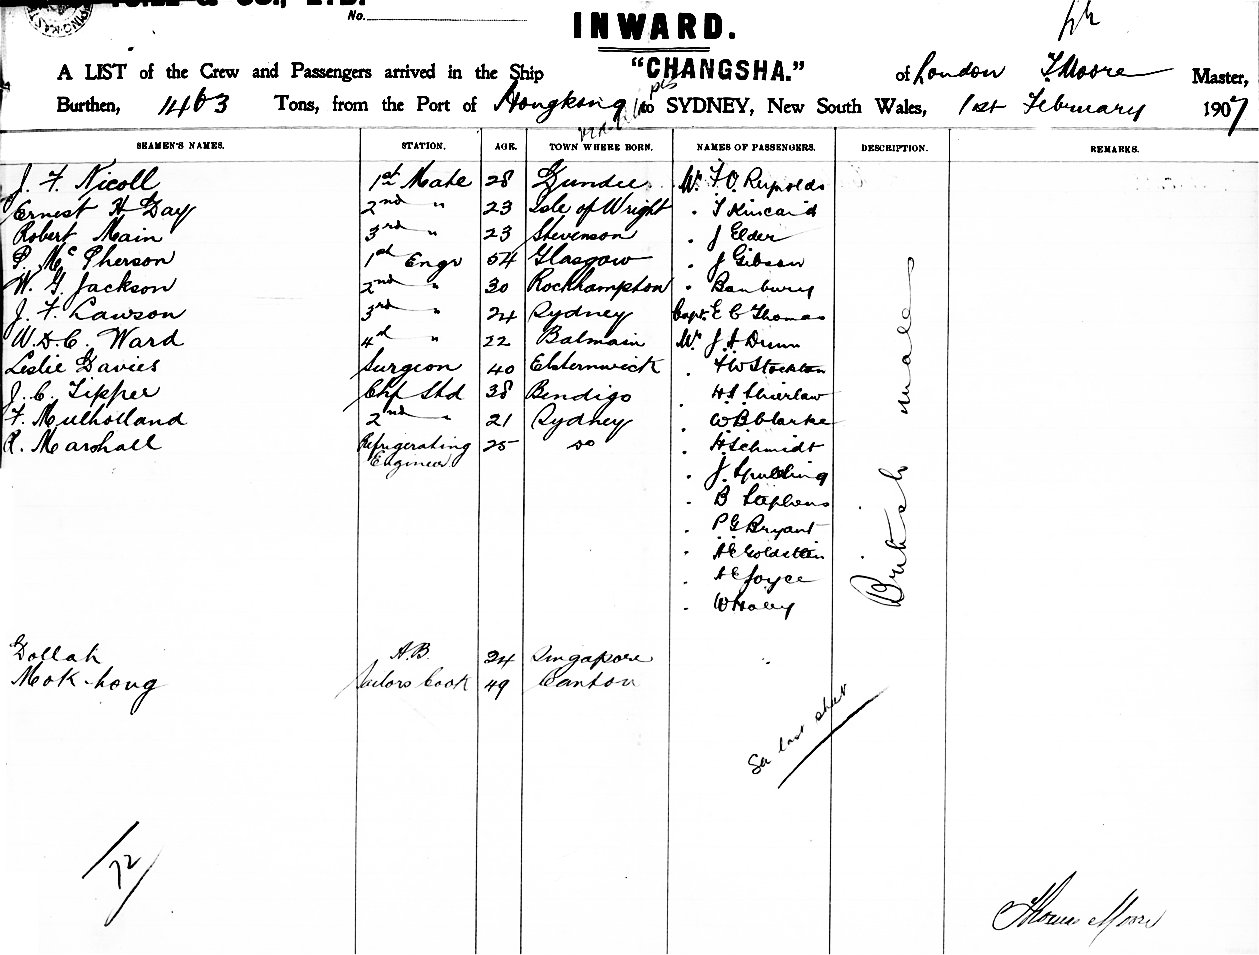 & CO., LTD.
No.
INWARD.
A LIST of the Crew and Passengers arrived in the Ship "CHANGSHA." of London T Moore Master,
Burthen, 1463 Tons, from the Port of Hongkong via pts to SYDNEY, New South Wales, 1st February 1907
SEAMEN'S NAMES. STATION. AGE. TOWN WHERE BORN. NAMES OF PASSENGERS. DESCRIPTION. REMARKS.
J. F. Nicoll 1st Mate 28 Dundee Mr F. O. Reynolds
Ernest H Day 2nd " 23 Isle of Wright " T Kincaid
Robert Main 3rd " 23 Stevenson " J Elder
P. McPherson 1st Engr 54 Glasgow " J Gibson
W. G. Jackson 2nd " 30 Rockhampton " Banbury
J. F. Lawson 3rd " 24 Sydney Capt. E C Thomas
W. D. C. Ward 4th " 22 Balmain Mr J A Dunn
Leslie Davies Surgeon 40 Elsternwick " F W Stockton
J. C. Tipper Chf Std 38 Bendigo " H S Shierlaw
F. Mulholland 2nd " 21 Sydney " W B Clarke
R. Marshall Refrigerating 25 do " H Schmidt
Engineer " J. Spulding
" B Stephens
" P G Bryant
" A E Goldstein
" A E Joyce
" W Haley
British males
Dollah A.B. 34 Singapore
Mok hong Sailors Cook 49 Canton
See last sheet
72
Thomas Moore